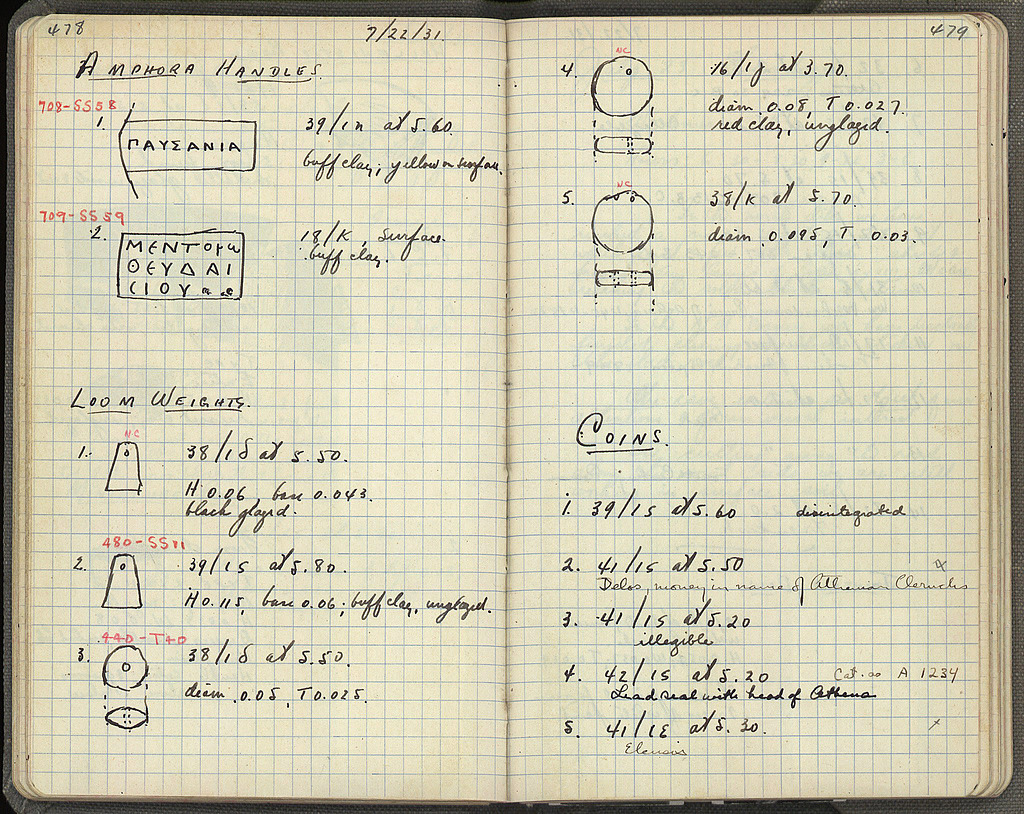 478
7/22/31.
AMPHORA HANDLES.
708-SS58
1.
ΠΑΥΣΑΝΙΑ
39/1n at 5.60.
buff clay; yellow on surface.
709-SS59
2.
ΜΕΝΤΟΡΩ
ΘΕΥΔΑΙ
ΣΙΟΥ
18/K, surface.
buff clay.
LOOM WEIGHTS.
N.C
1.
38/1δ at 5.50.
H. 0.06, base 0.043.
black glazed.
480-SS11
2.
39/15 at 5.80.
H 0.115, base 0.06; buff clay, unglazed.
440-T40
3.
38/1δ at 5.50.
diam. 0.05, T 0.025.
479
N.C
4.
16/1J at 3.70.
diam. 0.08, T 0.027.
red clay, unglazed.
N.C
5.
38/K at 5.70.
diam. 0.095, T. 0.03.
COINS.
1. 39/15 at 5.60 disintegrated
2. 41/15 at 5.50 x
Delos, money in name of Athenian Cleruchs
3. 41/15 at 5.20
illegible
4. 42/15 at 5.20 Cat. as A 1234
Lead seal with head of Athena
5. 41/1E at 5.30. x
Eleusis